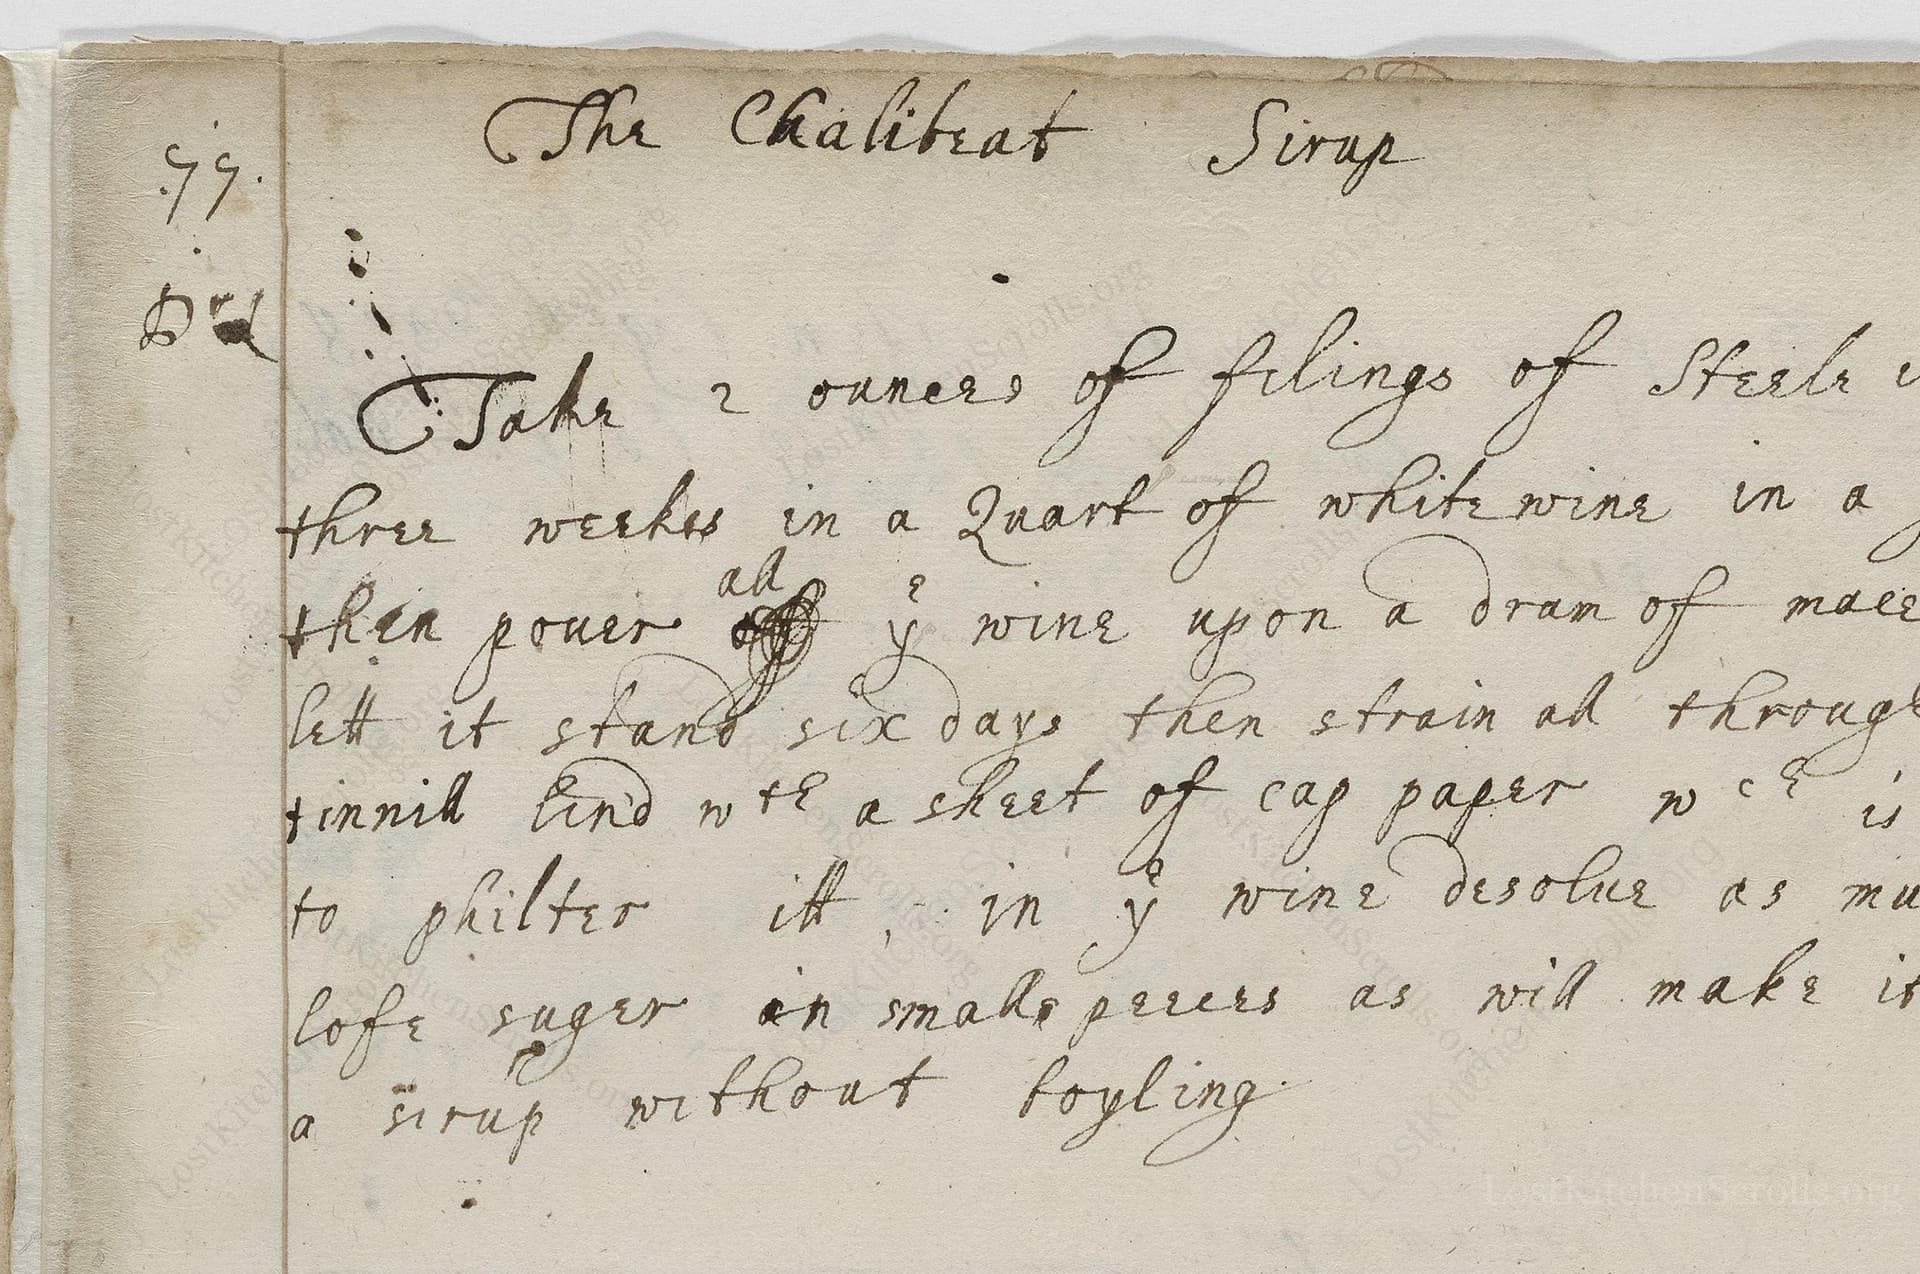 The Chalibeat Sirup
.77.
Take 2 ounces of filings of Steele
three weekes in a Quart of white wine in a
then pouer all yͤ wine upon a dram of mace
lett it stand six days then strain all through
tinnill lind wᵗʰ a sheet of cap paper wᶜʰ is
to philter itt, in yͤ wine desolue as mu
lofe suger in small peeces as will make it
a sirup without boyling
LostKitchenScrolls.org